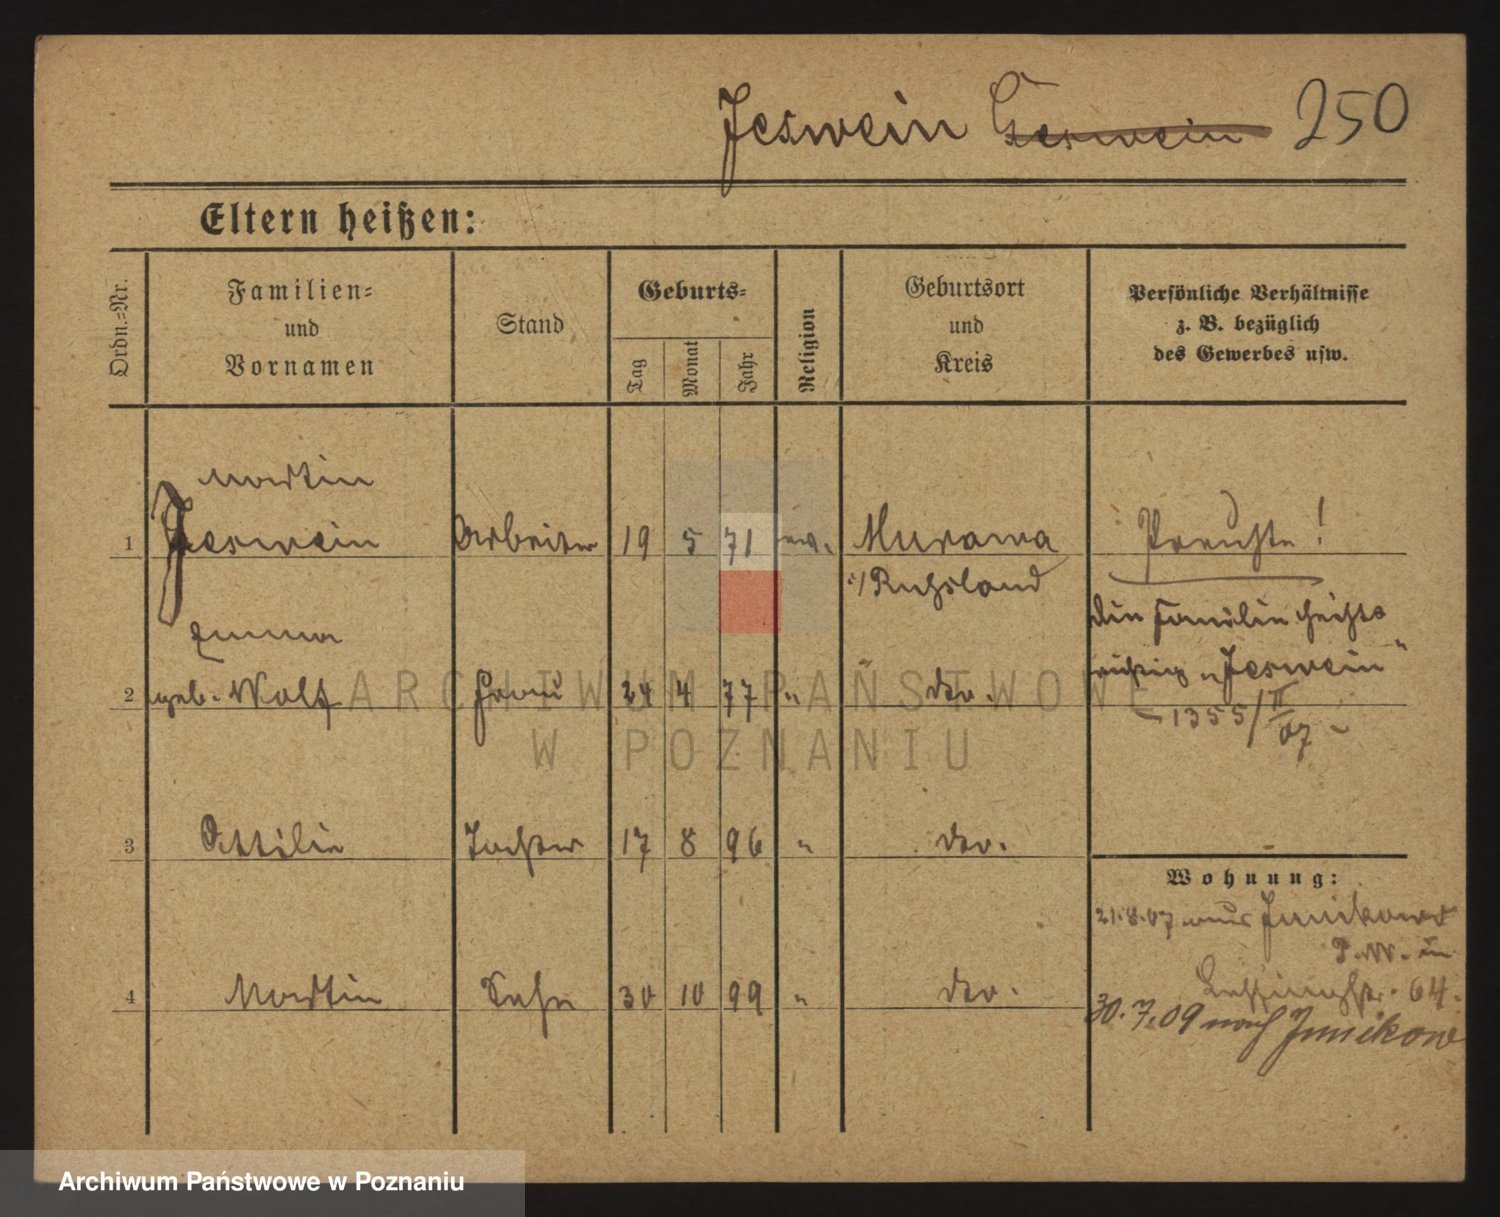 Jeswein Geswein 250
Eltern heißen:
Ordn.=Nr.
Familien=
und
Vornamen
Stand
Geburts=
Tag
Monat
Jahr
Religion
Geburtsort
und
Kreis
Persönliche Verhältnisse
z. B. bezüglich
des Gewerbes usw.
Martin
1 Jeswein Arbeiter 19 5 71 ev. Murawa Preuße!
Rußland
Die Familie heißt
Emma
richtig „Jeswein"
2 geb. Wolf Frau 24 4 77 " do.
1355/II 07
3 Ottilie Tochter 17 8 96 " do.
Wohnung:
21.8.07 aus Junikowo
4 Martin Sohn 30 10 99 " do.
64.
30.7.09 nach Junikow
ARCHIWUM PAŃSTWOWE
W POZNANIU
Archiwum Państwowe w Poznaniu